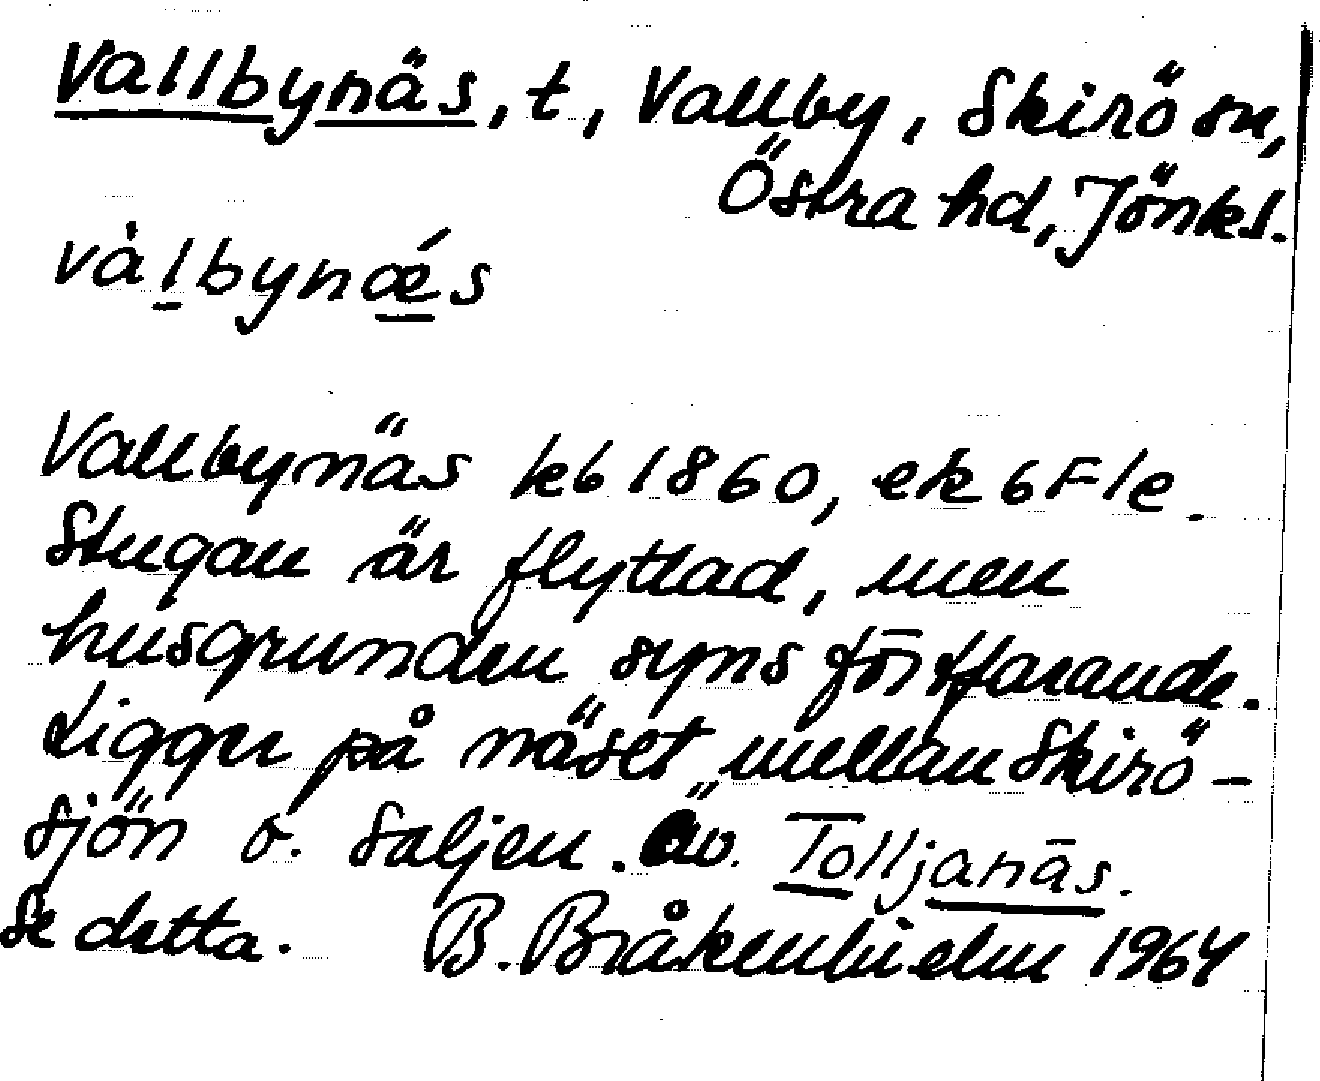 Vallbynäs, t, Vallby, Skirö sn,
Östra hd, Jönkl.
vàlbynǽs
Vallbynäs kb 1860, ek 6 F 1e.
Stugan är flyttad, men
husgrunden syns fortfarande.
Ligger på näset mellan Skirö-
sjön o. Saljen. Äv. Tolljanäs.
Se detta. B. Bråkenhielm 1964